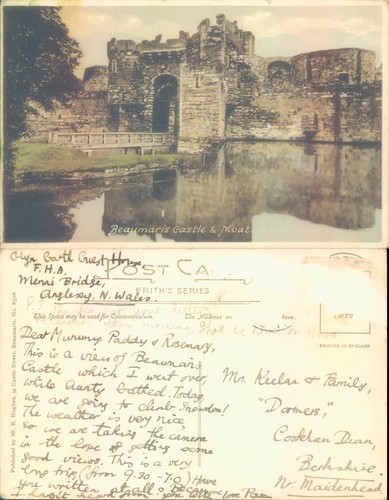 Beaumaris Castle & Moat.
Glyn Garth Guest House,
F.H.A.
Menai Bridge,
Anglesey. N. Wales.
POST CA
FRITH'S SERIES
This Space may be used for Communication.
The Address on here
PRINTED IN ENGLAND
Published by W. R. Hughes, 32 Castle Street, Beaumaris. No.
Dear Mummy Paddy & Rosemary,
This is a view of Beaumaris
Castle which I went over,
while Aunty bathed. Today,
we are going to climb Snowdon!
The weather is very nice,
so we are taking the camera
in the hope of getting some
good views. This is a very
long trip (from 9.30 - 7.0) Have
you written at all? because
I havn't heard from you. With love
Mr. Keelar & Family,
"Domers",
Cookham Dean,
Berkshire.
Nr. Maidenhead